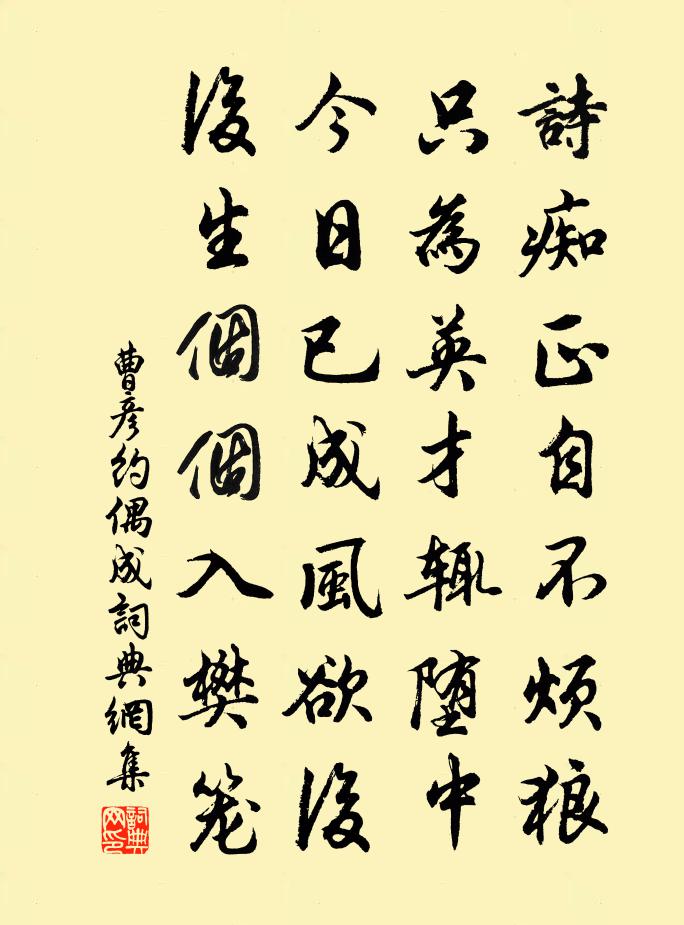 詩痴正自不煩狼
只為英才輙堕中
今日已成風欲後
後生個個入樊笼
曹彦約偶成詞典網集
詞典網印